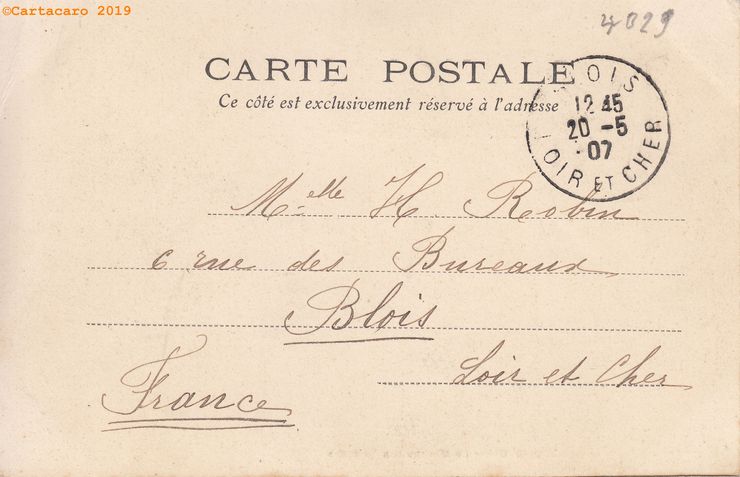 ©Cartacaro 2019
4029
CARTE POSTALE
Ce côté est exclusivement réservé à l'adresse
OIS
12 45
20 -5
07
LOIR ET CHER
Melle H. Robin
6 rue des Bureaux
Blois
Loir et Cher
France